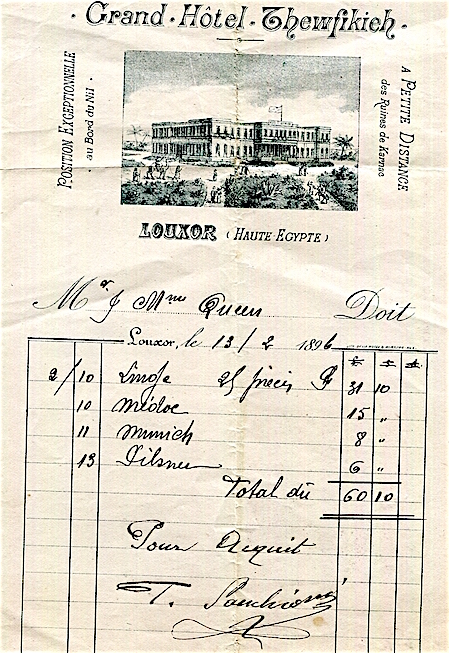 Grand · Hôtel · Thewfikieh ·
POSITION EXCEPTIONNELLE
au Bord du Nil ·
A PETITE DISTANCE
des Ruines de Karnac
LOUXOR ( HAUTE-EGYPTE )
Mr & Mme Queen Doit
Louxor, le 13/2 1896
2/10 Linge 25 pièces 31 10
10 Médoc 15 „
11 Munich 8 „
13 Pilsner 6 „
Total dû 60 10
Pour Acquit